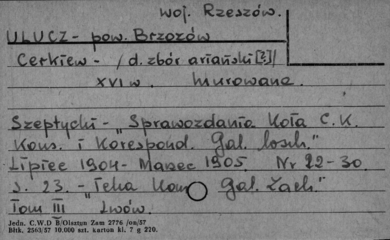 woj. Rzeszów.
ULUCZ - pow. Brzozów
Cerkiew - /d. zbór ariański [?]/
XVI w. murowana.
Szeptycki - "Sprawozdania Koła C.K.
Kons. i Korespond. Gal. Wsch."
Lipiec 1904 - Marzec 1905. Nr 22-30
s. 23. - "Teka Kons Gal. Zach."
Tom III Lwów.
Jedn. C.W.D B/Olsztyn Zam 2776 /on/57
Błtk. 2563/57 10.000 szt. karton kl. 7 g 220.